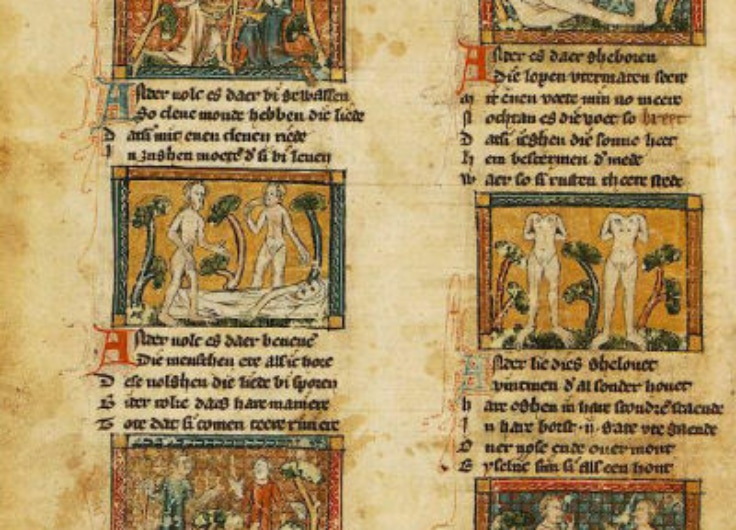 Ander volc es daer bi gewassen
So clene monde hebben die liede
D atsi mit enen clenen riede
I n zughen moetē d' si bi leuen
Ander volc es daer beneuē
Die menschen ete als ic hore
D ese volghen die liede bi sporen
dats hare maniere
T ote dat si comen teere riuiere
Ander es daer gheboren
Die lopen vtermaten seere
M it enen voete min no meere
N ochtan es die voet so breet
D atsi ieghen die sonne heet
H em bescermen d' mede
W aer so si rusten theere stede
Ander lie dies ghelouet
vintmen d' al sonder houet
H are oghen in hare scoudrē staende
I n hare borst .ii. gate vte gaende
O uer nose ende ouer mont
E yselijc sin si als een hont